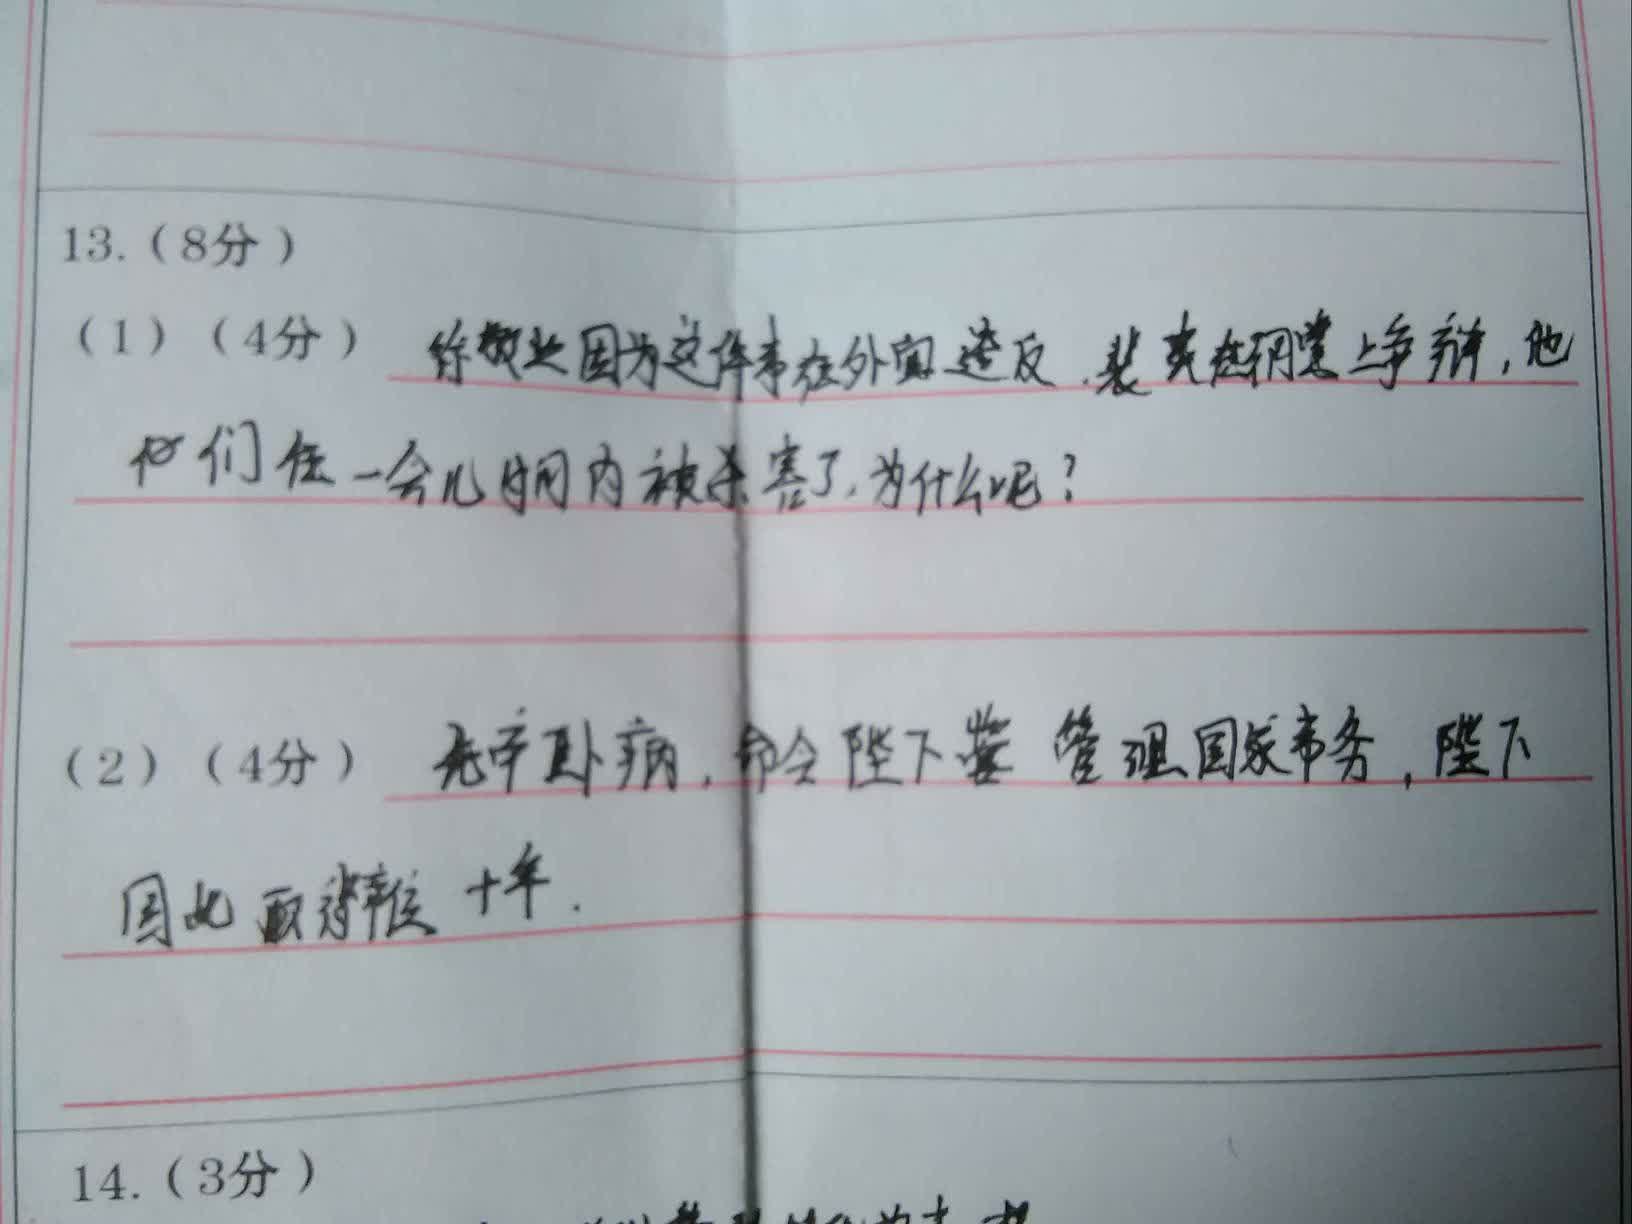 13.（8分）
（1）（4分） 徐敬业因为这件事在外面造反，裴炎在朝堂上争辩，他
们在一会儿时间内被杀害了，为什么呢？
（2）（4分） 先帝卧病，命令陛下 管理国家事务，陛下
因此取得 十年.
14.（3分）